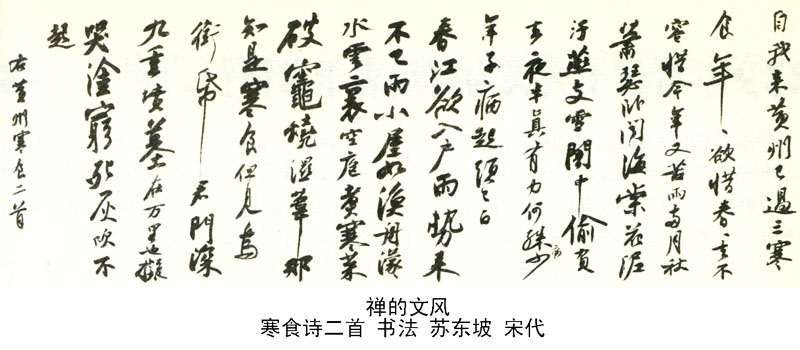 自我来黄州已過三寒
食年〻欲惜春〻去不
容惜今年又苦雨兩月秋
蕭瑟卧聞海棠花泥
汙燕支雪闇中偷負
去夜半真有力何殊少病
年子病起頭已白
春江欲入户雨勢来
不已雨小屋如漁舟濛〻
水雲裏空庖煑寒菜
破竈燒濕葦那
知是寒食但見烏
銜帋君門深
九重墳墓在万里也擬
哭塗窮死灰吹不
起
右黄州寒食二首
禅的文风
寒食诗二首 书法 苏东坡 宋代